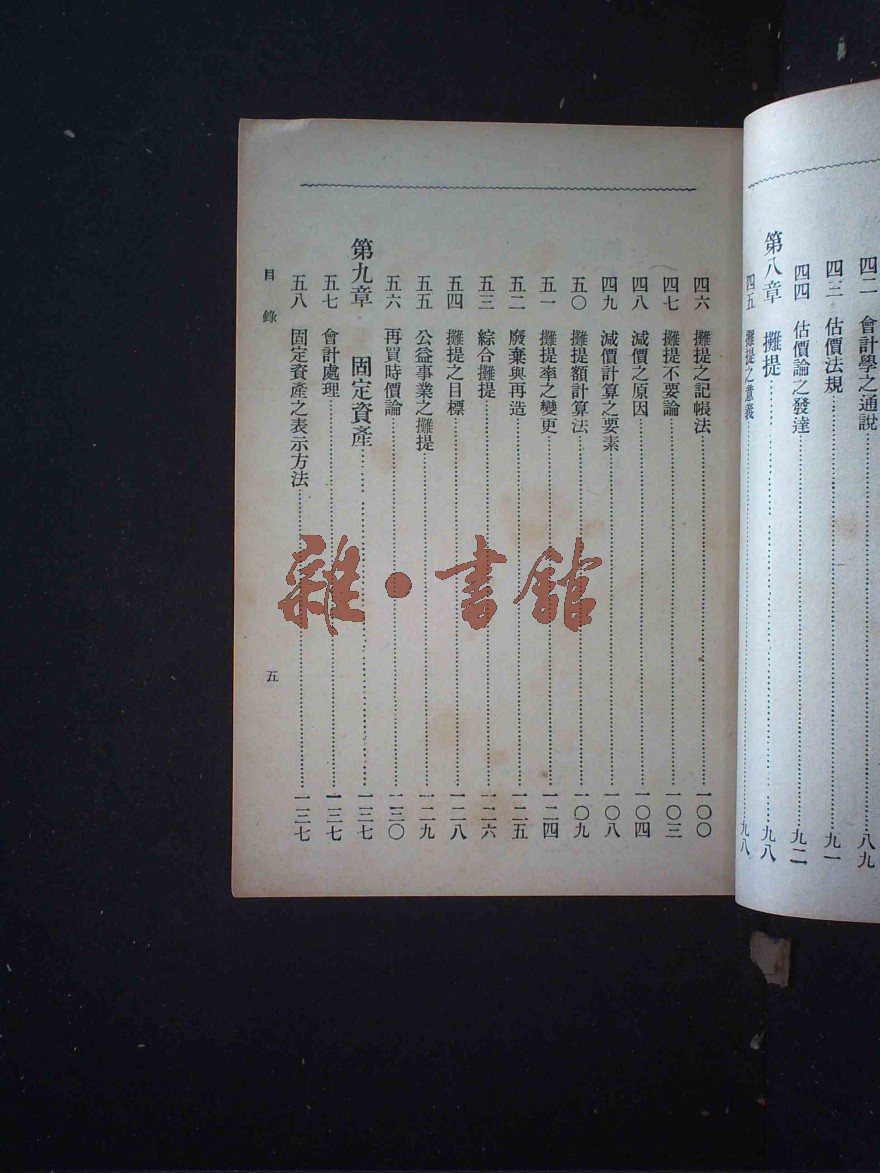 四二　會計學之通說……八九
四三　估價法規……九一
四四　估價論之發達……九二
第八章　攤提……九八
四五　攤提之意義……九八
四六　攤提之記帳法……一〇〇
四七　攤提不要論……一〇三
四八　減價之原因……一〇四
四九　減價計算之要素……一〇八
五〇　攤提額計算法……一〇九
五一　攤提率之變更……一二四
五二　廢棄與再造……一二五
五三　綜合攤提……一二六
五四　攤提之目標……一二八
五五　公益事業之攤提……一二九
五六　再買時價論……一三〇
第九章　固定資產……一三七
五七　會計處理……一三七
五八　固定資產之表示方法……一三七
目錄
五
雜·書館